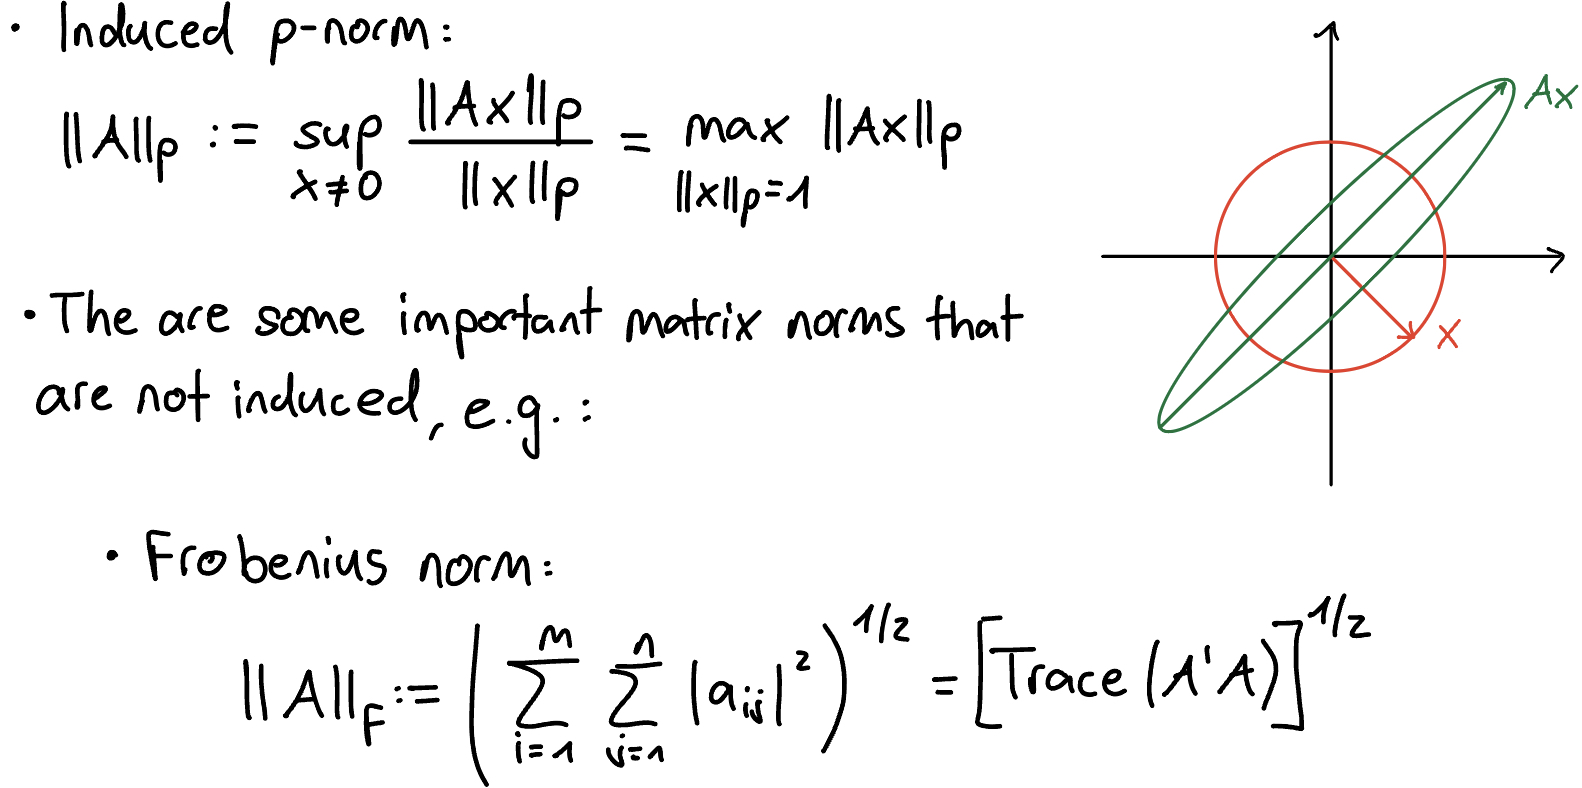 • Induced p-norm:
||A||ₚ := sup x≠0 ||Ax||ₚ / ||x||ₚ = max ||x||ₚ=1 ||Ax||ₚ
Ax
x
• The are some important matrix norms that
are not induced, e.g.:
• Frobenius norm:
||A||_F := ( ∑_{i=1}^{m} ∑_{j=1}^{n} |a_{ij}|² )^{1/2} = [Trace (A'A)]^{1/2}